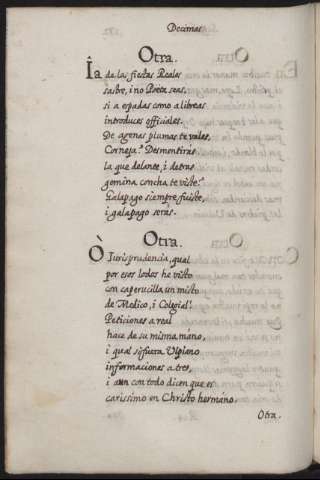 Decimas
Otra.
Ia de las fiestas Reales
sastre, i no Poeta seas,
si a espadas como a libreas
introduces officiales.
De agenas plumas te vales,
Corneja? Desmentiras
la que delante, i detras
gemina concha te viste?
Galapago siempre fuiste,
i galapago seras.
Otra.
Ò Iurisprudencia, qual
por esos lodos he visto
con caperucilla un misto
de Medico, i Colegial!
Peticiones a real
hace de su misma mano,
i qual si fuera Ulpiano
informaciones a tres,
i aun con todo dicen que es
carissimo en Christo hermano.
Otra.